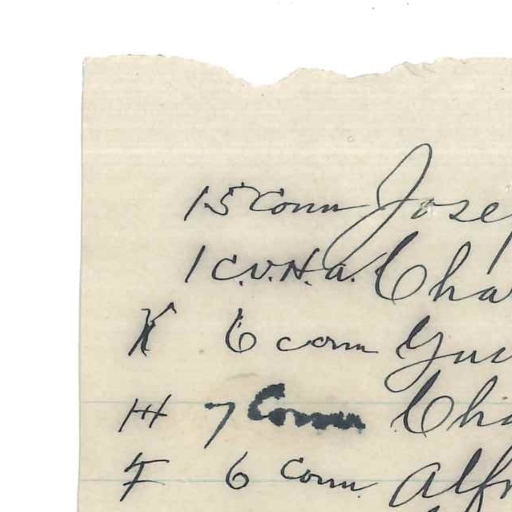 15 Conn Josep
1 C.V.H.a. Cha
K 6 conn
H 7 Conn Cha
F 6 Conn. Alfr